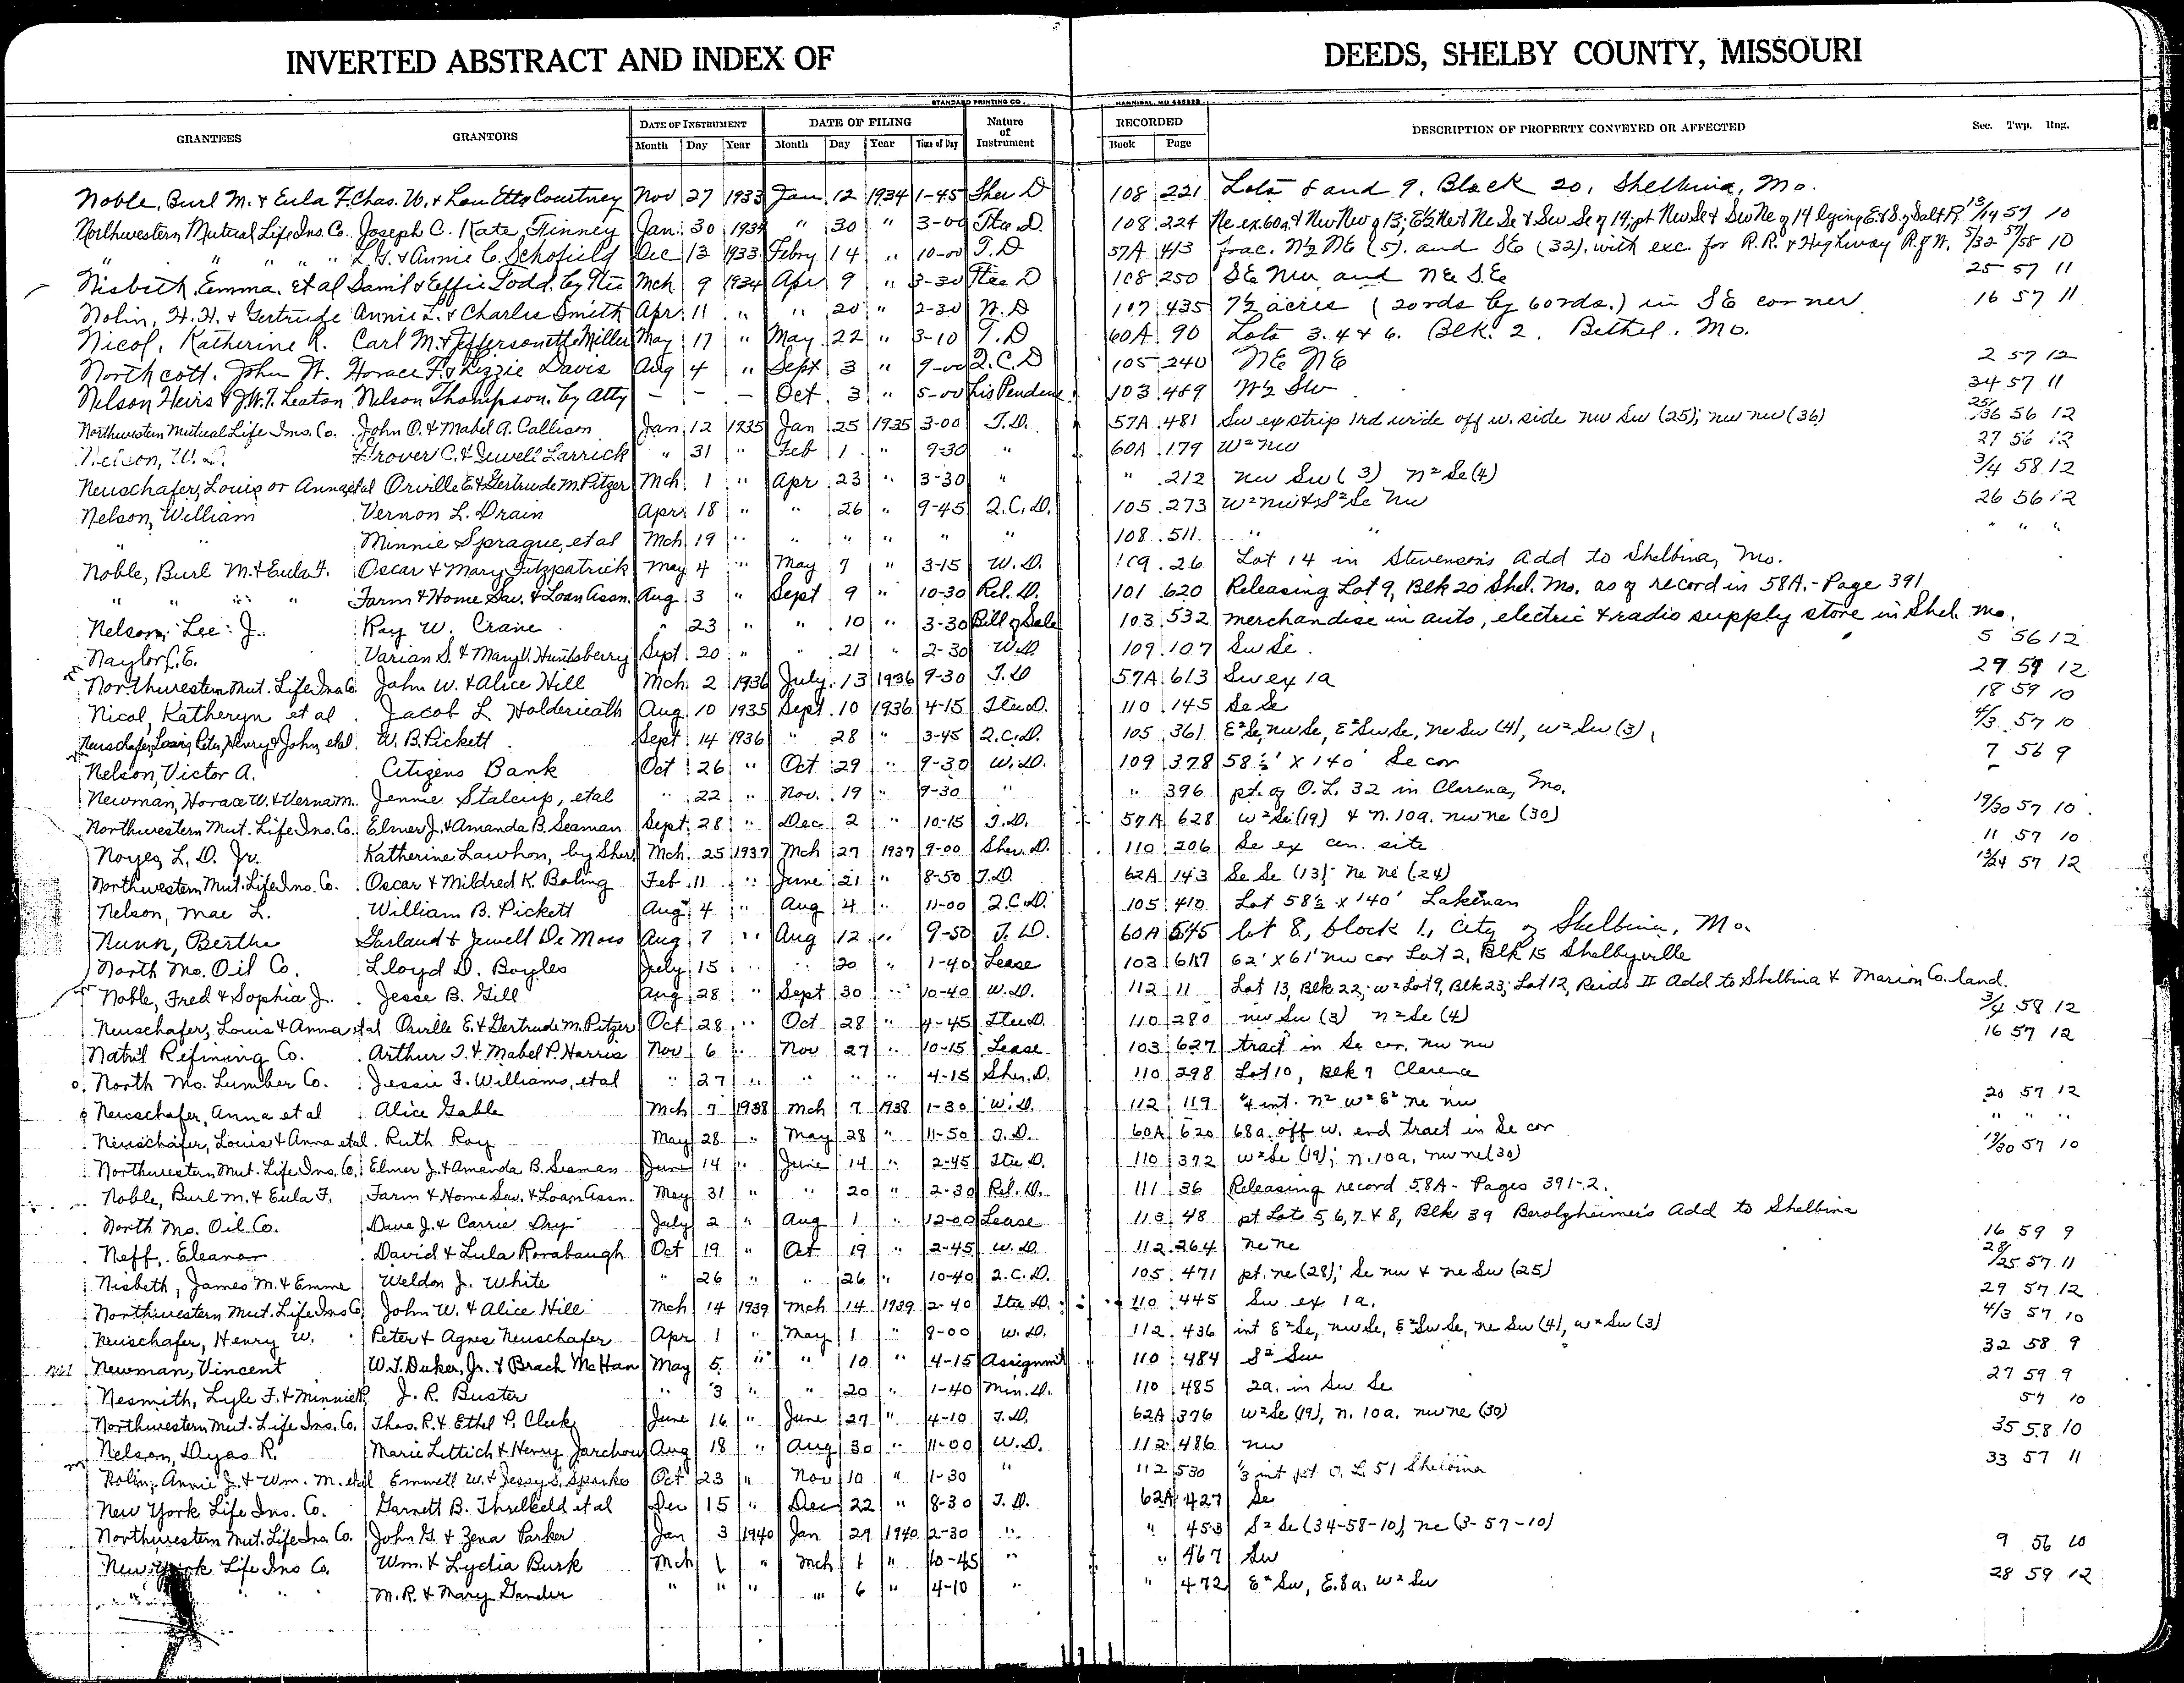 INVERTED ABSTRACT AND INDEX OF DEEDS, SHELBY COUNTY, MISSOURI
STANDARD PRINTING CO. HANNIBAL, MO
GRANTEES GRANTORS DATE OF INSTRUMENT DATE OF FILING Nature of Instrument RECORDED DESCRIPTION OF PROPERTY CONVEYED OR AFFECTED Sec. Twp. Rng.
Month Day Year Month Day Year Time of Day Book Page
Noble, Burl M. & Eula F. Chas. W. & Lou Etta Courtney Nov 27 1933 Jan 12 1934 1-45 Sher D 108 221 Lots 8 and 9, Block 20, Shelbina, Mo.
Northwestern Mutual Life Ins. Co. Joseph C. Kate Finney Jan. 30 1934 " 30 " 3-00 Thee D. 108 224 Ne ex 60a & Nw Nw of 13; E½ Ne & Ne Se & Sw Se of 14; pt Nw Se & Sw Ne of 14 lying E & S of Salt R. 13/14 57 10
" " " " " L. G. & Annie C. Schofield Dec 13 1933 Febry 14 " 10-00 T.D 57A 413 frac. N½ NE (5). and SE (32). with exc. for R.R. & Highway R. of W. 5/32 57/58 10
Nisbeth, Emma. et al Saml & Effie Todd. by Tee Mch 9 1934 Apr 9 " 3-30 Tee D 108 250 SE NW and NE SE 25 57 11
Nolin, H. H. & Gertrude Annie L. & Charles Smith Apr. 11 " " 20 " 2-30 W.D 107 435 7½ acres (20rds by 60rds.) in SE corner 16 57 11
Nicol, Katherine R. Carl M. & Jeffersonetta Miller May 17 " May 22 " 3-10 T.D 60A 90 Lots 3. 4 & 6. Blk. 2. Bethel. Mo.
Northcott. John W. Horace F. & Lizzie Davis Aug 4 " Sept 3 " 9-00 Q.C.D 105 240 NE NE 2 57 12
Nelson Heirs & J.W.T. Leaton Nelson Thompson. by Atty - - - Oct. 3 " 5-00 Lis Pendens 103 469 W½ SW 34 57 11
Northwestern Mutual Life Ins. Co. John O. & Mabel A. Callison Jan 12 1935 Jan 25 1935 3-00 T.D. 57A 481 Sw ex strip 1rd wide off w. side nw Sw (25); nw nw (36) 25/36 56 12
Nelson, W. D. Grover C. & Jewell Larrick " 31 " Feb 1 " 9-30 " 60A 179 W² nw 27 56 12
Neuschafer, Louis or Anna et al Orville E. & Gertrude M. Pitzer Mch. 1 " Apr 23 " 3-30 " " 212 nw Sw (3) n² Se (4) 3/4 58 12
Nelson, William Vernon L. Drain Apr. 18 " " 26 " 9-45 Q.C.D. 105 273 W² nw & S² Se nw 26 56 12
" " Minnie Sprague, et al Mch 19 " " " " " " 108 511 " " " " "
Noble, Burl M. & Eula F. Oscar & Mary Fitzpatrick May 4 " May 7 " 3-15 W.D. 109 26 Lot 14 in Stevenson's Add to Shelbina, Mo.
" " " " Farm & Home Sav. & Loan Assn. Aug 3 " Sept 9 " 10-30 Rel. D. 101 620 Releasing Lot 9, Blk 20 Shel. Mo. as of record in 58A - Page 391
Nelson, Lee J. Ray W. Crane " 23 " " 10 " 3-30 Bill of Sale 103 532 merchandise in auto, electric & radio supply store in Shel. Mo.
Naylor C. E. Varian S. & Mary V. Huntsberry Sept 20 " " 21 " 2-30 W.D 109 107 Sw Se. 5 56 12
Northwestern Mut. Life Ins Co. John W. & Alice Hill Mch 2 1936 July 13 1936 9-30 T.D 57A 613 Sw ex 1a 29 59 12
Nicol, Katheryn et al Jacob L. Holderieath Aug 10 1935 Sept 10 1936 4-15 Tee D. 110 145 Se Se 18 59 10
Neuschafer, Louis, Peter, Henry & John, etal. W. B. Pickett Sept 14 1936 " 28 " 3-45 Q.C.D. 105 361 E² Se, nw Se, E² Sw Se, ne Sw (4), w² Sw (3), 4/3 57 10
Nelson, Victor A. Citizens Bank Oct 26 " Oct 29 " 9-30 W.D. 109 378 58½' x 140' Se cor 7 56 9
Newman, Horace W. & Verna M. Jennie Stalcup, etal " 22 " Nov. 19 " 9-30 " " 396 pt. of O.L. 32 in Clarence, Mo.
Northwestern Mut. Life Ins. Co. Elmer J. & Amanda B. Seaman Sept 28 " Dec 2 " 10-15 T.D. 57A 628 w² Se (19) & n. 10a. nw ne (30) 19/30 57 10
Noyes, L. D. Jr. Katherine Lawhon, by Sher Mch 25 1937 Mch 27 1937 9-00 Sher. D. 110 206 Se ex cem. site 11 57 10
Northwestern Mut. Life Ins. Co. Oscar & Mildred K. Boling Feb 11 " June 21 " 8-50 T.D. 62A 143 Se Se (13); ne ne (24) 13/24 57 12
Nelson, Mae L. William B. Pickett Aug 4 " Aug 4 " 11-00 Q.C.D. 105 410 Lot 58½ x 140' Lakenan
Nunn, Bertha Garland & Jewell De Moss Aug 7 " Aug 12 " 9-50 T.D. 60A 545 lot 8, block 1, City of Shelbina, Mo.
North Mo. Oil Co. Lloyd D. Boyles July 15 " " 20 " 1-40 Lease 103 617 62' x 61' nw cor Lot 2, Blk 15 Shelbyville
Noble, Fred & Sophia J. Jesse B. Gill Aug 28 " Sept 30 " 10-40 W.D. 112 11 Lot 13, Blk 22; w² Lot 9, Blk 23; Lot 12, Reids II Add to Shelbina & Marion Co. land.
Neuschafer, Louis & Anna etal Orville E. & Gertrude M. Pitzer Oct 28 " Oct 28 " 4-45 Tee D. 110 280 nw Sw (3) n² Se (4) 3/4 58 12
Nat'l Refining Co. Arthur T. & Mabel P. Harris Nov 6 " Nov 27 " 10-15 Lease 103 627 tract in Se cor. nw nw 16 57 12
North Mo. Lumber Co. Jessie F. Williams, etal " 27 " " " " 4-15 Sher. D. 110 298 Lot 10, Blk 7 Clarence
Neuschafer, Anna et al Alice Gable Mch 7 1938 Mch 7 1938 1-30 W.D. 112 119 ¼ int. n² w² E² ne nw 20 57 12
Neuschafer, Louis & Anna etal. Ruth Roy May 28 " May 28 " 11-50 T.D. 60A 620 68a. off w. end tract in Se cor " " "
Northwestern Mut. Life Ins. Co. Elmer J. & Amanda B. Seaman June 14 " June 14 " 2-45 Tee D. 110 372 w² Se (19); n. 10a. nw ne (30) 19/30 57 10
Noble, Burl M. & Eula F. Farm & Home Sav. & Loan Assn. May 31 " " 20 " 2-30 Rel. D. 111 36 Releasing record 58A - Pages 391-2.
North Mo. Oil Co. Dave J. & Carrie Dry July 2 " Aug 1 " 12-00 Lease 113 48 pt Lot 5, 6, 7 & 8, Blk 39 Berolzheimer's Add to Shelbina
Neff, Eleanor David & Lula Rorabaugh Oct 19 " Oct 19 " 2-45 W.D. 112 264 ne ne 16 59 9
Nisbeth, James M. & Emma Weldon J. White " 26 " " 26 " 10-40 Q.C.D. 105 471 pt. ne (28); Se nw & ne Sw (25) 28/25 57 11
Northwestern Mut. Life Ins Co John W. & Alice Hill Mch 14 1939 Mch 14 1939 2-40 Tee D. 110 445 Sw ex 1a. 29 57 12
Neuschafer, Henry W. Peter & Agnes Neuschafer Apr 1 " May 1 " 8-00 W.D. 112 436 int E² Se, nw Se, E² Sw Se, ne Sw (4), w² Sw (3) 4/3 57 10
Newman, Vincent W. T. Duker, Jr. & Brack McHan May 5 " " 10 " 4-15 Assignmt 110 484 S² Sw 32 58 9
Nesmith, Lyle F. & Minnie R. J. R. Buster " 3 " " 20 " 1-40 Min. D. 110 485 2a. in Sw Se 27 59 9
Northwestern Mut. Life Ins. Co. Thos. R. & Ethel P. Cleek June 16 " June 27 " 4-10 T.D. 62A 376 w² Se (19), n. 10a. nw ne (30) 57 10
Nelson, Dyas R. Marie Littich & Henry Jarchow Aug 18 " Aug 30 " 11-00 W.D. 112 486 nw 35 58 10
Nolin, Annie J. & Wm. M. etal Emmett W. & Jessy S. Sparks Oct 23 " Nov 10 " 1-30 " 112 530 ⅓ int pt. O.L. 51 Shelbina 33 57 11
New York Life Ins. Co. Garnett B. Threlkeld et al Dec 15 " Dec 22 " 8-30 T.D. 62A 427 Se
Northwestern Mut. Life Ins. Co. John G. & Zena Parker Jan 3 1940 Jan 29 1940 2-30 " " 453 S² Se (34-58-10); ne (3-57-10)
New York Life Ins Co. Wm. & Lydia Burk Mch 1 " Mch 1 " 10-45 " " 467 Sw 9 56 10
" " M. R. & Mary Gander " " " " 6 " 4-10 " " 472 E² Sw, E. 8a. w² Sw 28 59 12